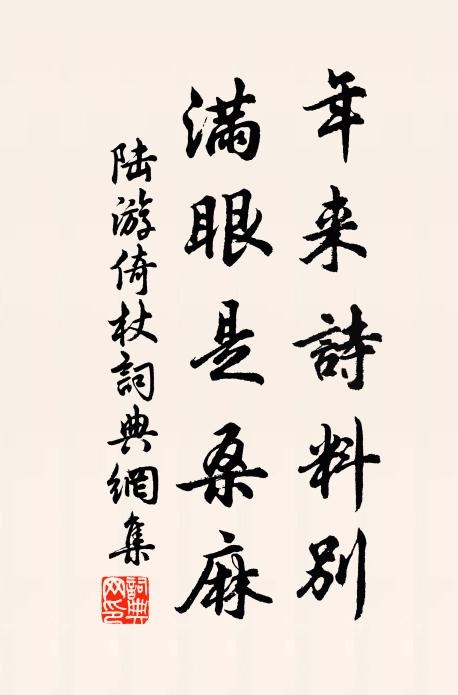 年来詩料别
滿眼是桑麻
陆游倚杖詞典網集
詞典
网印